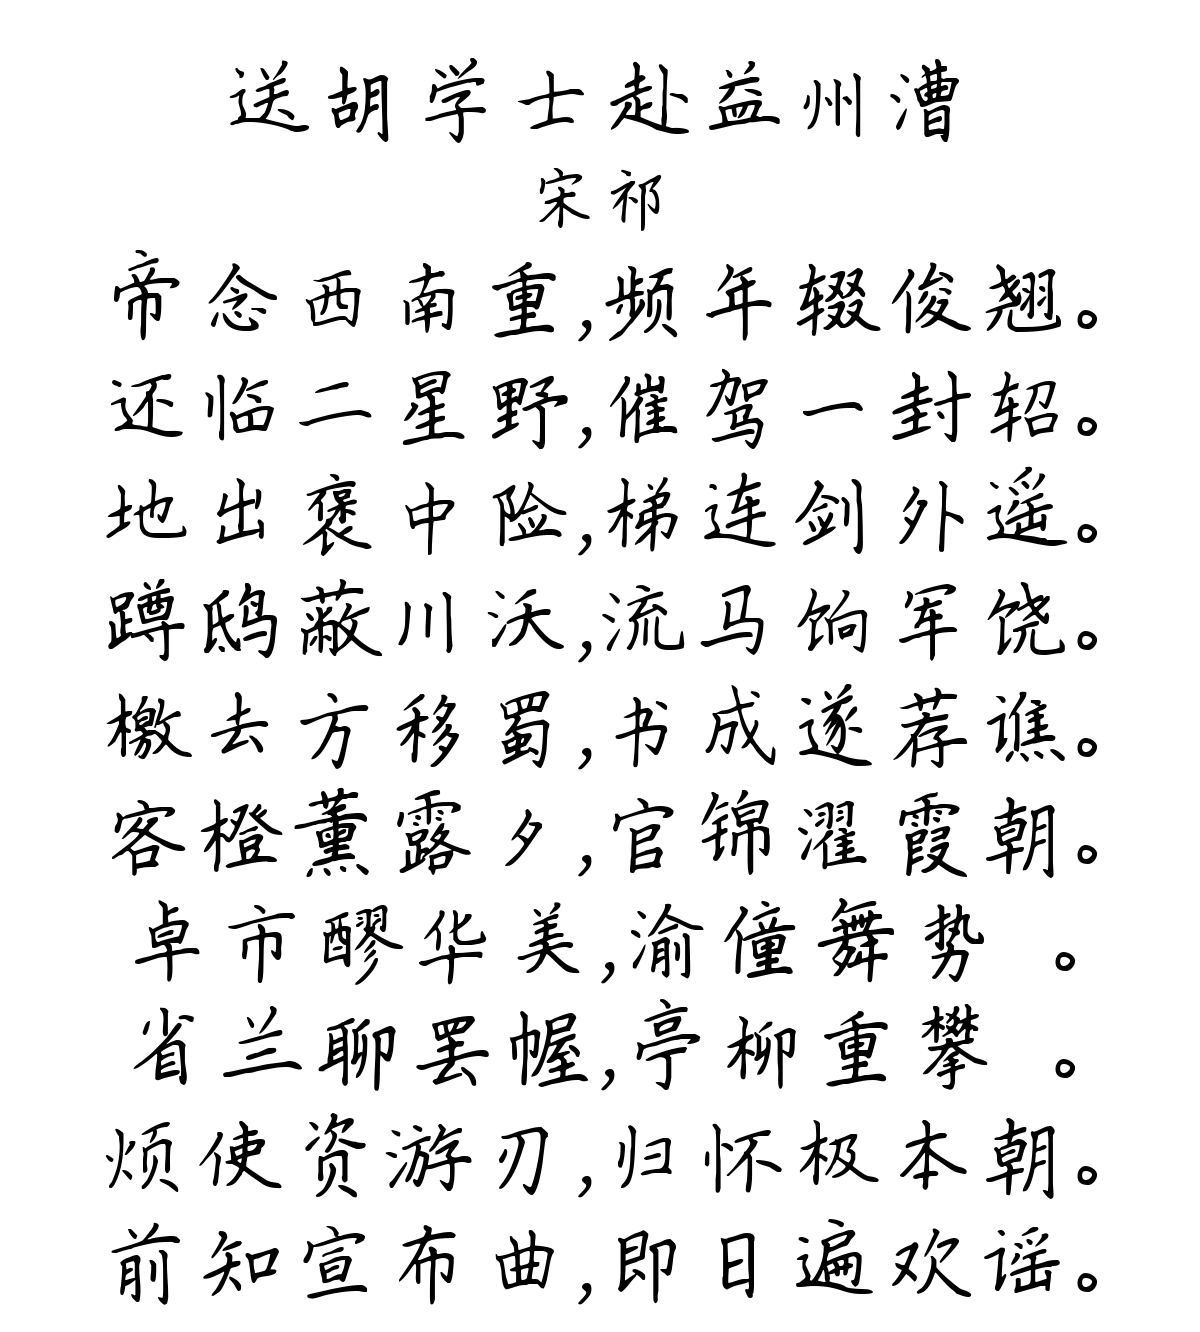 送胡学士赴益州漕
宋祁
帝念西南重,频年辍俊翘。
还临二星野,催驾一封轺。
地出褒中险,梯连剑外遥。
蹲鸱蔽川沃,流马饷军饶。
檄去方移蜀,书成遂荐谯。
客橙薰露夕,官锦濯霞朝。
卓市醪华美,渝僮舞势 。
省兰聊罢幄,亭柳重攀 。
烦使资游刃,归怀极本朝。
前知宣布曲,即日遍欢谣。